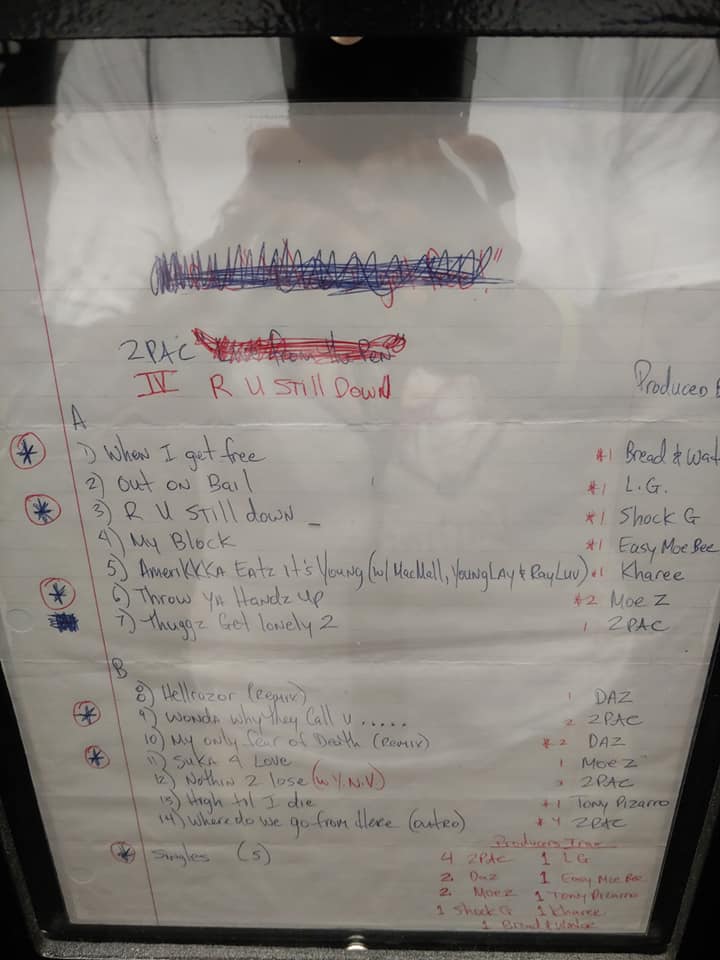 2PAC
IV R U Still Down
Produced B
A
* 1) When I get free *1 Bread & Wat
2) Out on Bail *1 L.G.
* 3) R U Still down _ *1 Shock G
4) My Block *1 Easy Moe Bee
5) AmeriKKKA Eatz it's Young (w/ MacMall, Young Lay & Ray Luv) *1 Kharee
* 6) Throw Ya Handz up *2 Moe Z
7) Thuggz Get lonely 2 1 2PAC
B
8) Hellrazor (Remix) 1 DAZ
* 9) Wonda why they Call U ..... 2 2PAC
10) My only fear of Death (Remix) *2 DAZ
* 11) Suka 4 Love 1 Moe Z
12) Nothin 2 lose (w Y.N.V) 2PAC
13) High til I die *1 Tony Pizarro
14) Where do we go from Here (outro) *4 2PAC
* Singles (5)
4 2PAC 1 LG
2 Daz 1 Easy Moe Bee
2 Moe Z 1 Tony Pizarro
1 Shock G 1 Kharee
1 Bread & Water